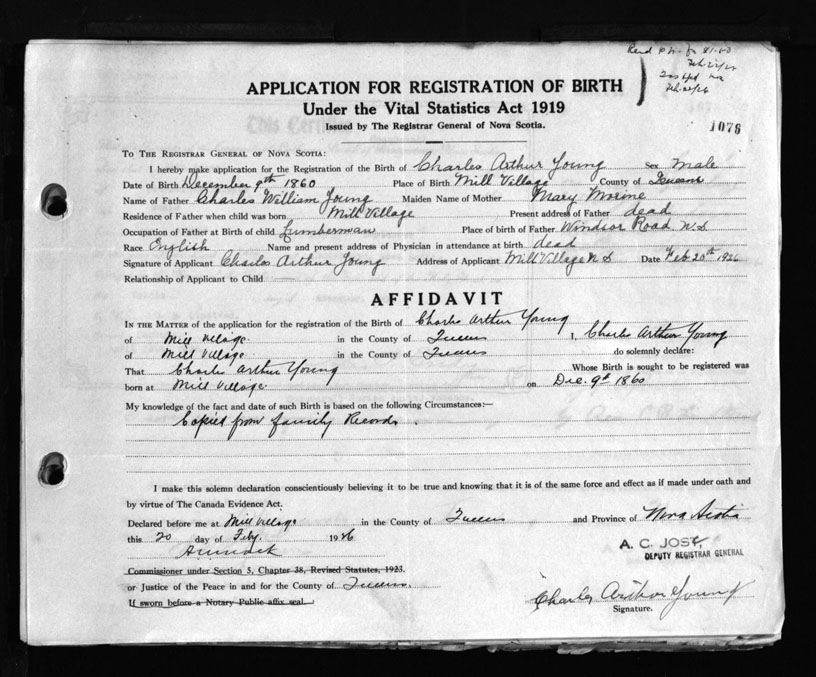 APPLICATION FOR REGISTRATION OF BIRTH
Under the Vital Statistics Act 1919
Issued by The Registrar General of Nova Scotia.
1076
To The Registrar General of Nova Scotia:
I hereby make application for the Registration of the Birth of Charles Arthur Young Sex Male
Date of Birth December 9th 1860 Place of Birth Mill Village County of Queens
Name of Father Charles William Young Maiden Name of Mother Mary Morine
Residence of Father when child was born Mill Village Present address of Father dead
Occupation of Father at Birth of child Lumberman Place of birth of Father Windsor Road N.S.
Race English Name and present address of Physician in attendance at birth dead
Signature of Applicant Charles Arthur Young Address of Applicant Mill Village N S Date Feb 20th 1926
Relationship of Applicant to Child
AFFIDAVIT
In the Matter of the application for the registration of the Birth of Charles Arthur Young
of Mill Village in the County of Queens I, Charles Arthur Young
of Mill Village in the County of Queens do solemnly declare:
That Charles Arthur Young Whose Birth is sought to be registered was
born at Mill Village on Dec. 9th 1860
My knowledge of the fact and date of such Birth is based on the following Circumstances:—
Copied from family Records.
I make this solemn declaration conscientiously believing it to be true and knowing that it is of the same force and effect as if made under oath and
by virtue of The Canada Evidence Act.
Declared before me at Mill Village in the County of Queens and Province of Nova Scotia
this 20 day of Feby. 1926
A. C. JOST,
DEPUTY REGISTRAR GENERAL
Commissioner under Section 5, Chapter 38, Revised Statutes, 1923.
or Justice of the Peace in and for the County of Queens.
If sworn before a Notary Public affix seal.
Charles Arthur Young
Signature.